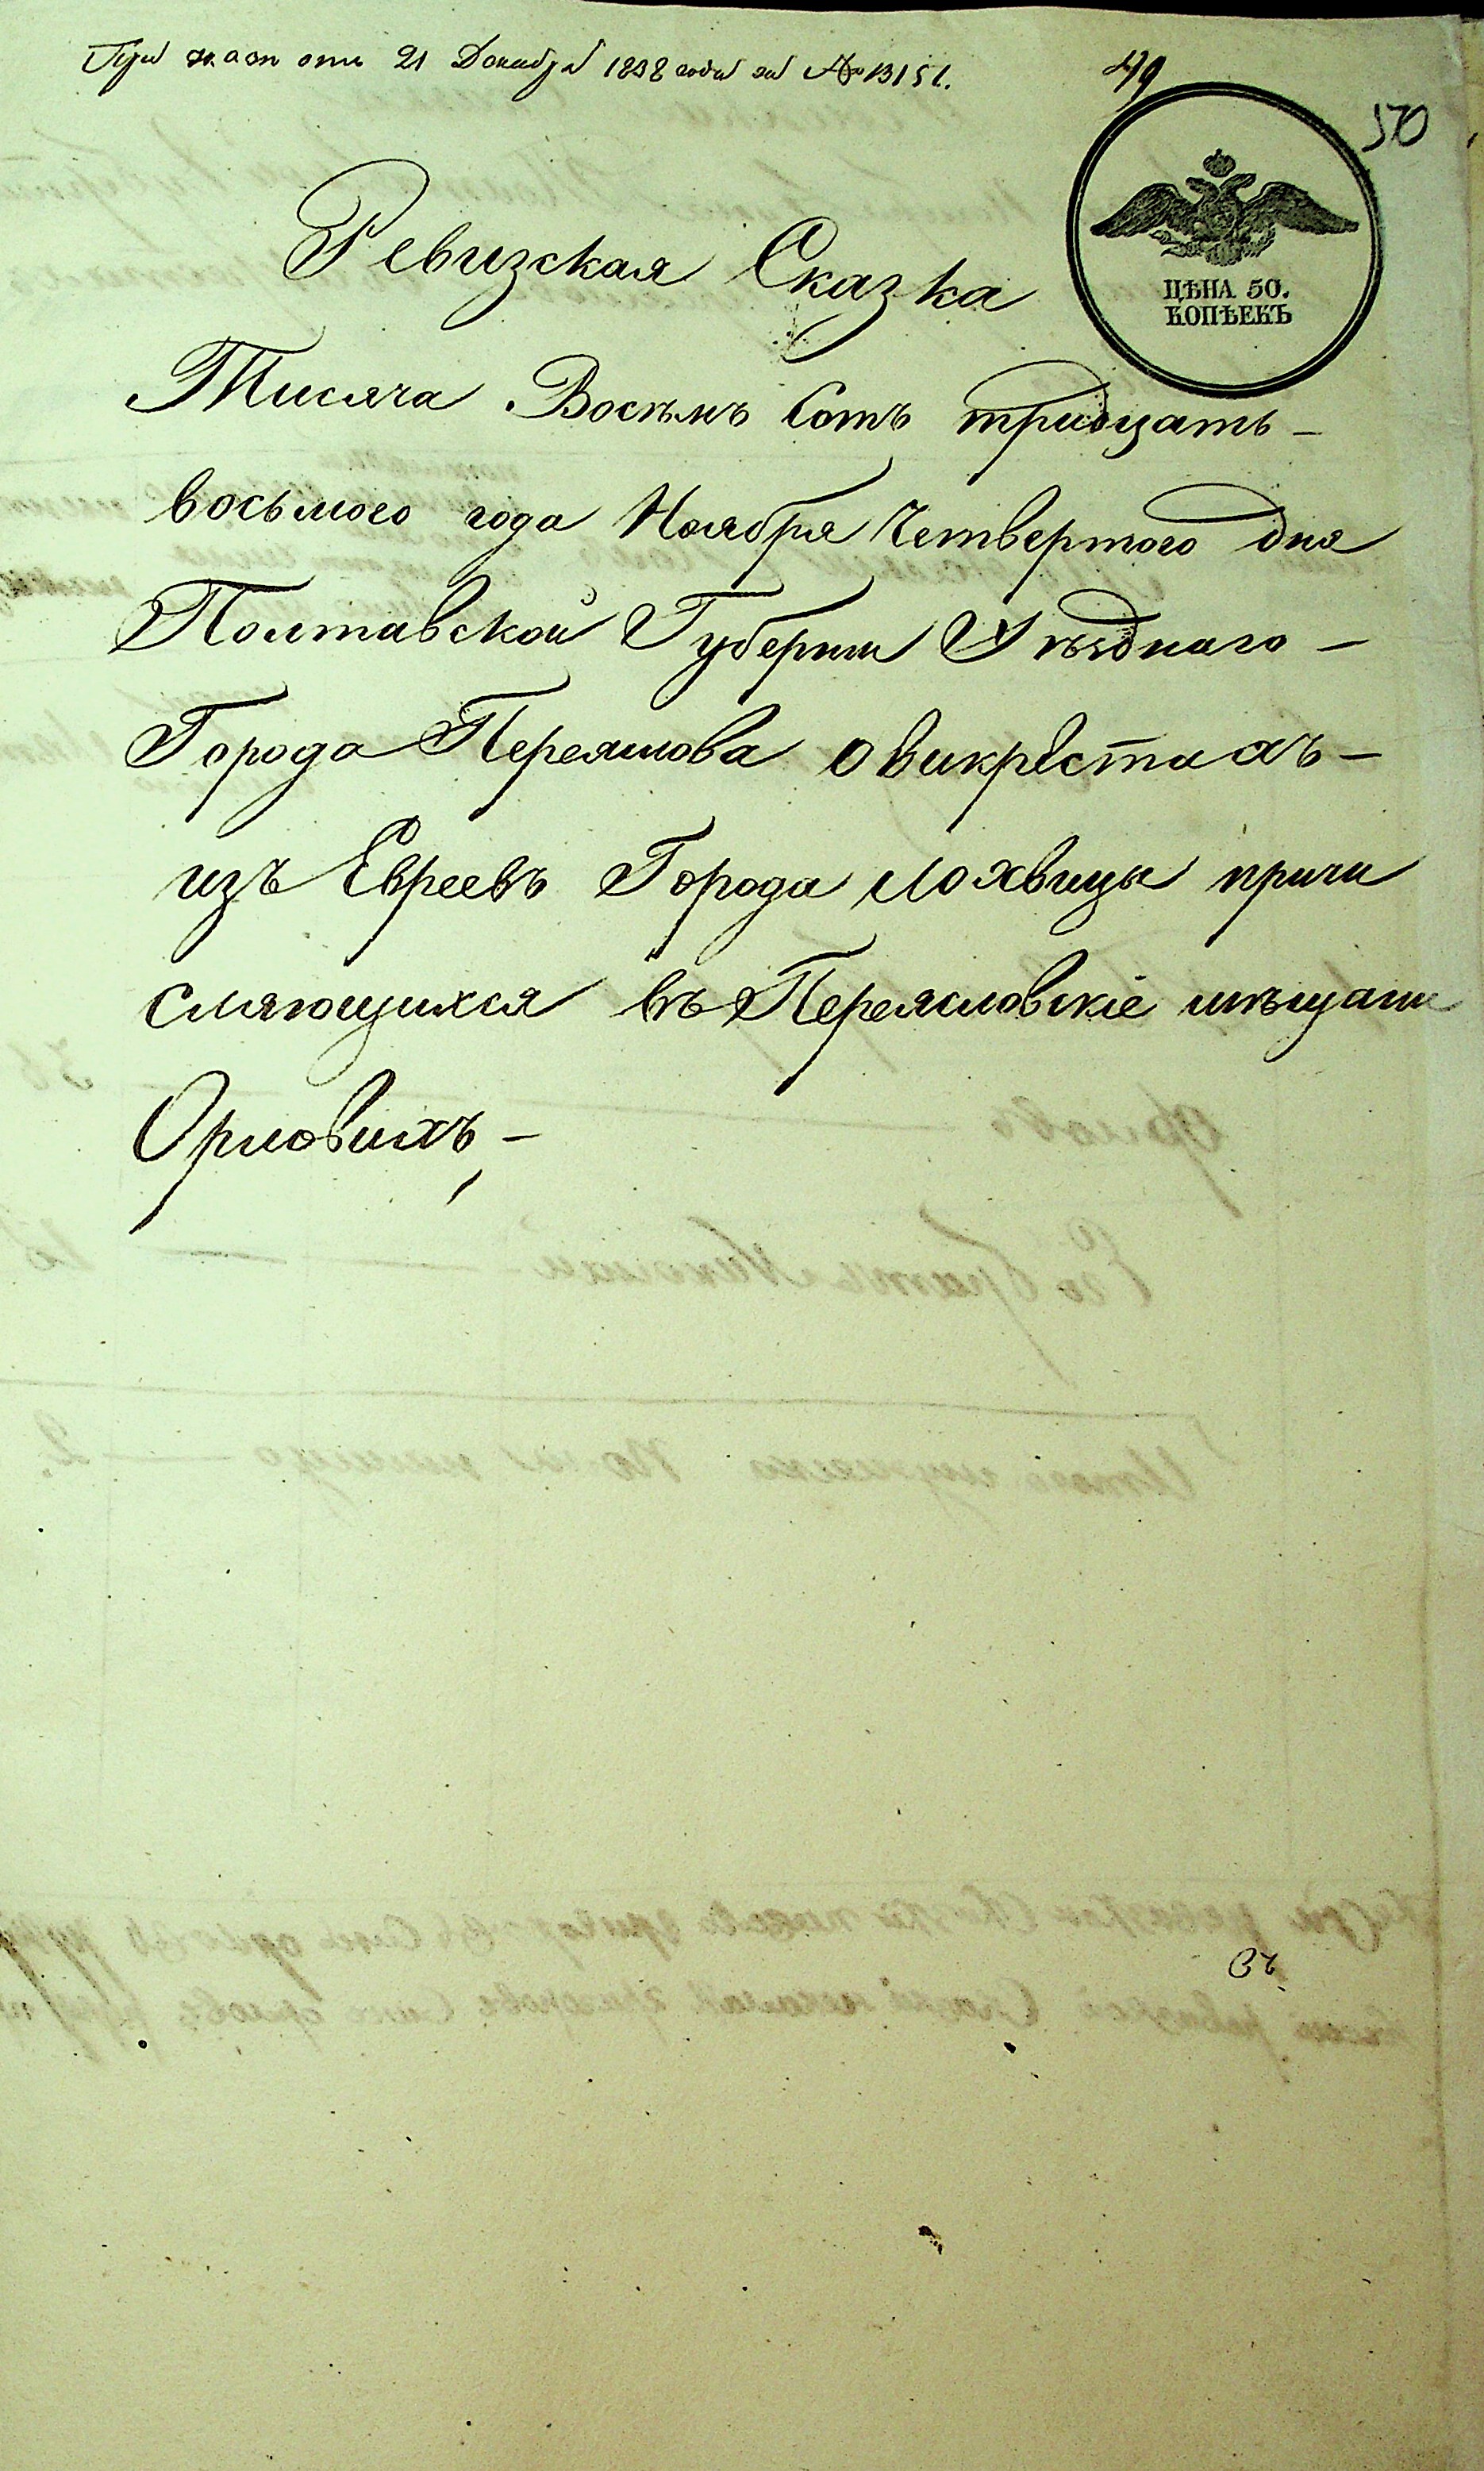 При отн. 21 Декабря 1838 года за № 13151.
49
50
ЦѢНА 50.
КОПѢЕКЪ
Ревизская Сказка
Тисяча Восѣмъ Сотъ тридцать –
восьмого года Ноября Четвертого дня
Полтавской Губернии Уѣзднаго –
Города Переяслова о викрестахъ –
изъ Евреевъ Города Лохвицы причи
сляющихся въ Переясловскіе мѣщани
Орловихъ, –
Съ